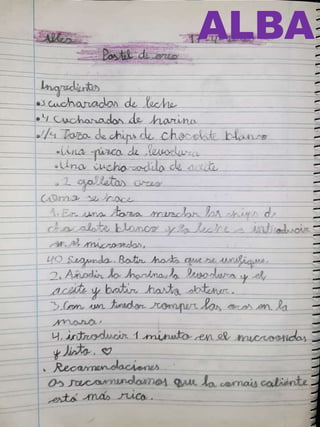 ALBA
Alba
Pastel de oreo
Ingredientes
• 3 cucharadas de leche
• 4 cucharadas de harina
• 1/4 Taza de chips de chocolate blanco
• Una pizca de levadura
• Una cucharadita de aceite
• 2 galletas oreo
Como se hace
1. En una taza mezclar los chips de
chocolate blanco y la leche e introducir
en el microondas.
40 segundos. Batir hasta que se unifique.
2. Añadir la harina, la levadura y el
aceite y batir hasta obtener.
3. Con un tenedor romper las oreos en la
masa.
4. introducir 1 minuto en el microondas
y listo. ♡
. Recomendaciones
Os recomendamos que la comais caliente
está más rico.